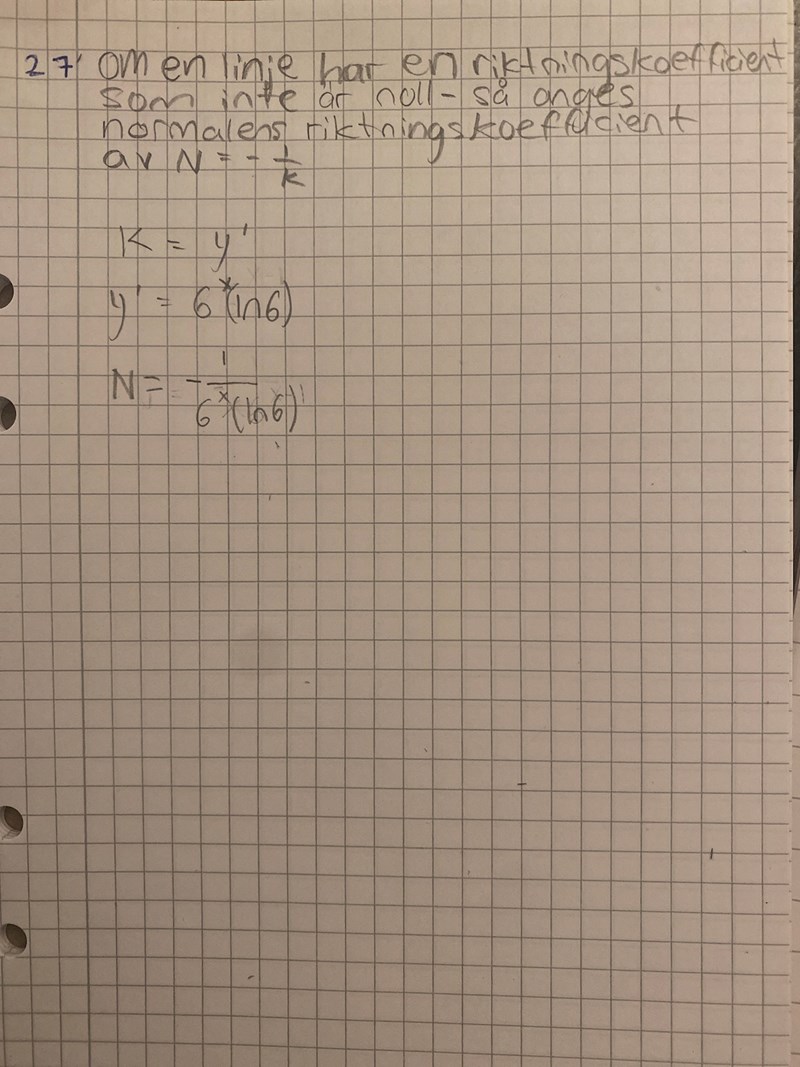 27' Om en linje har en riktningskoefficient
som inte är noll - så anges
normalens riktningskoefficient
av N = - 1/k
K = y'
y' = 6^x (ln6)
N = - 1/(6^x (ln6))